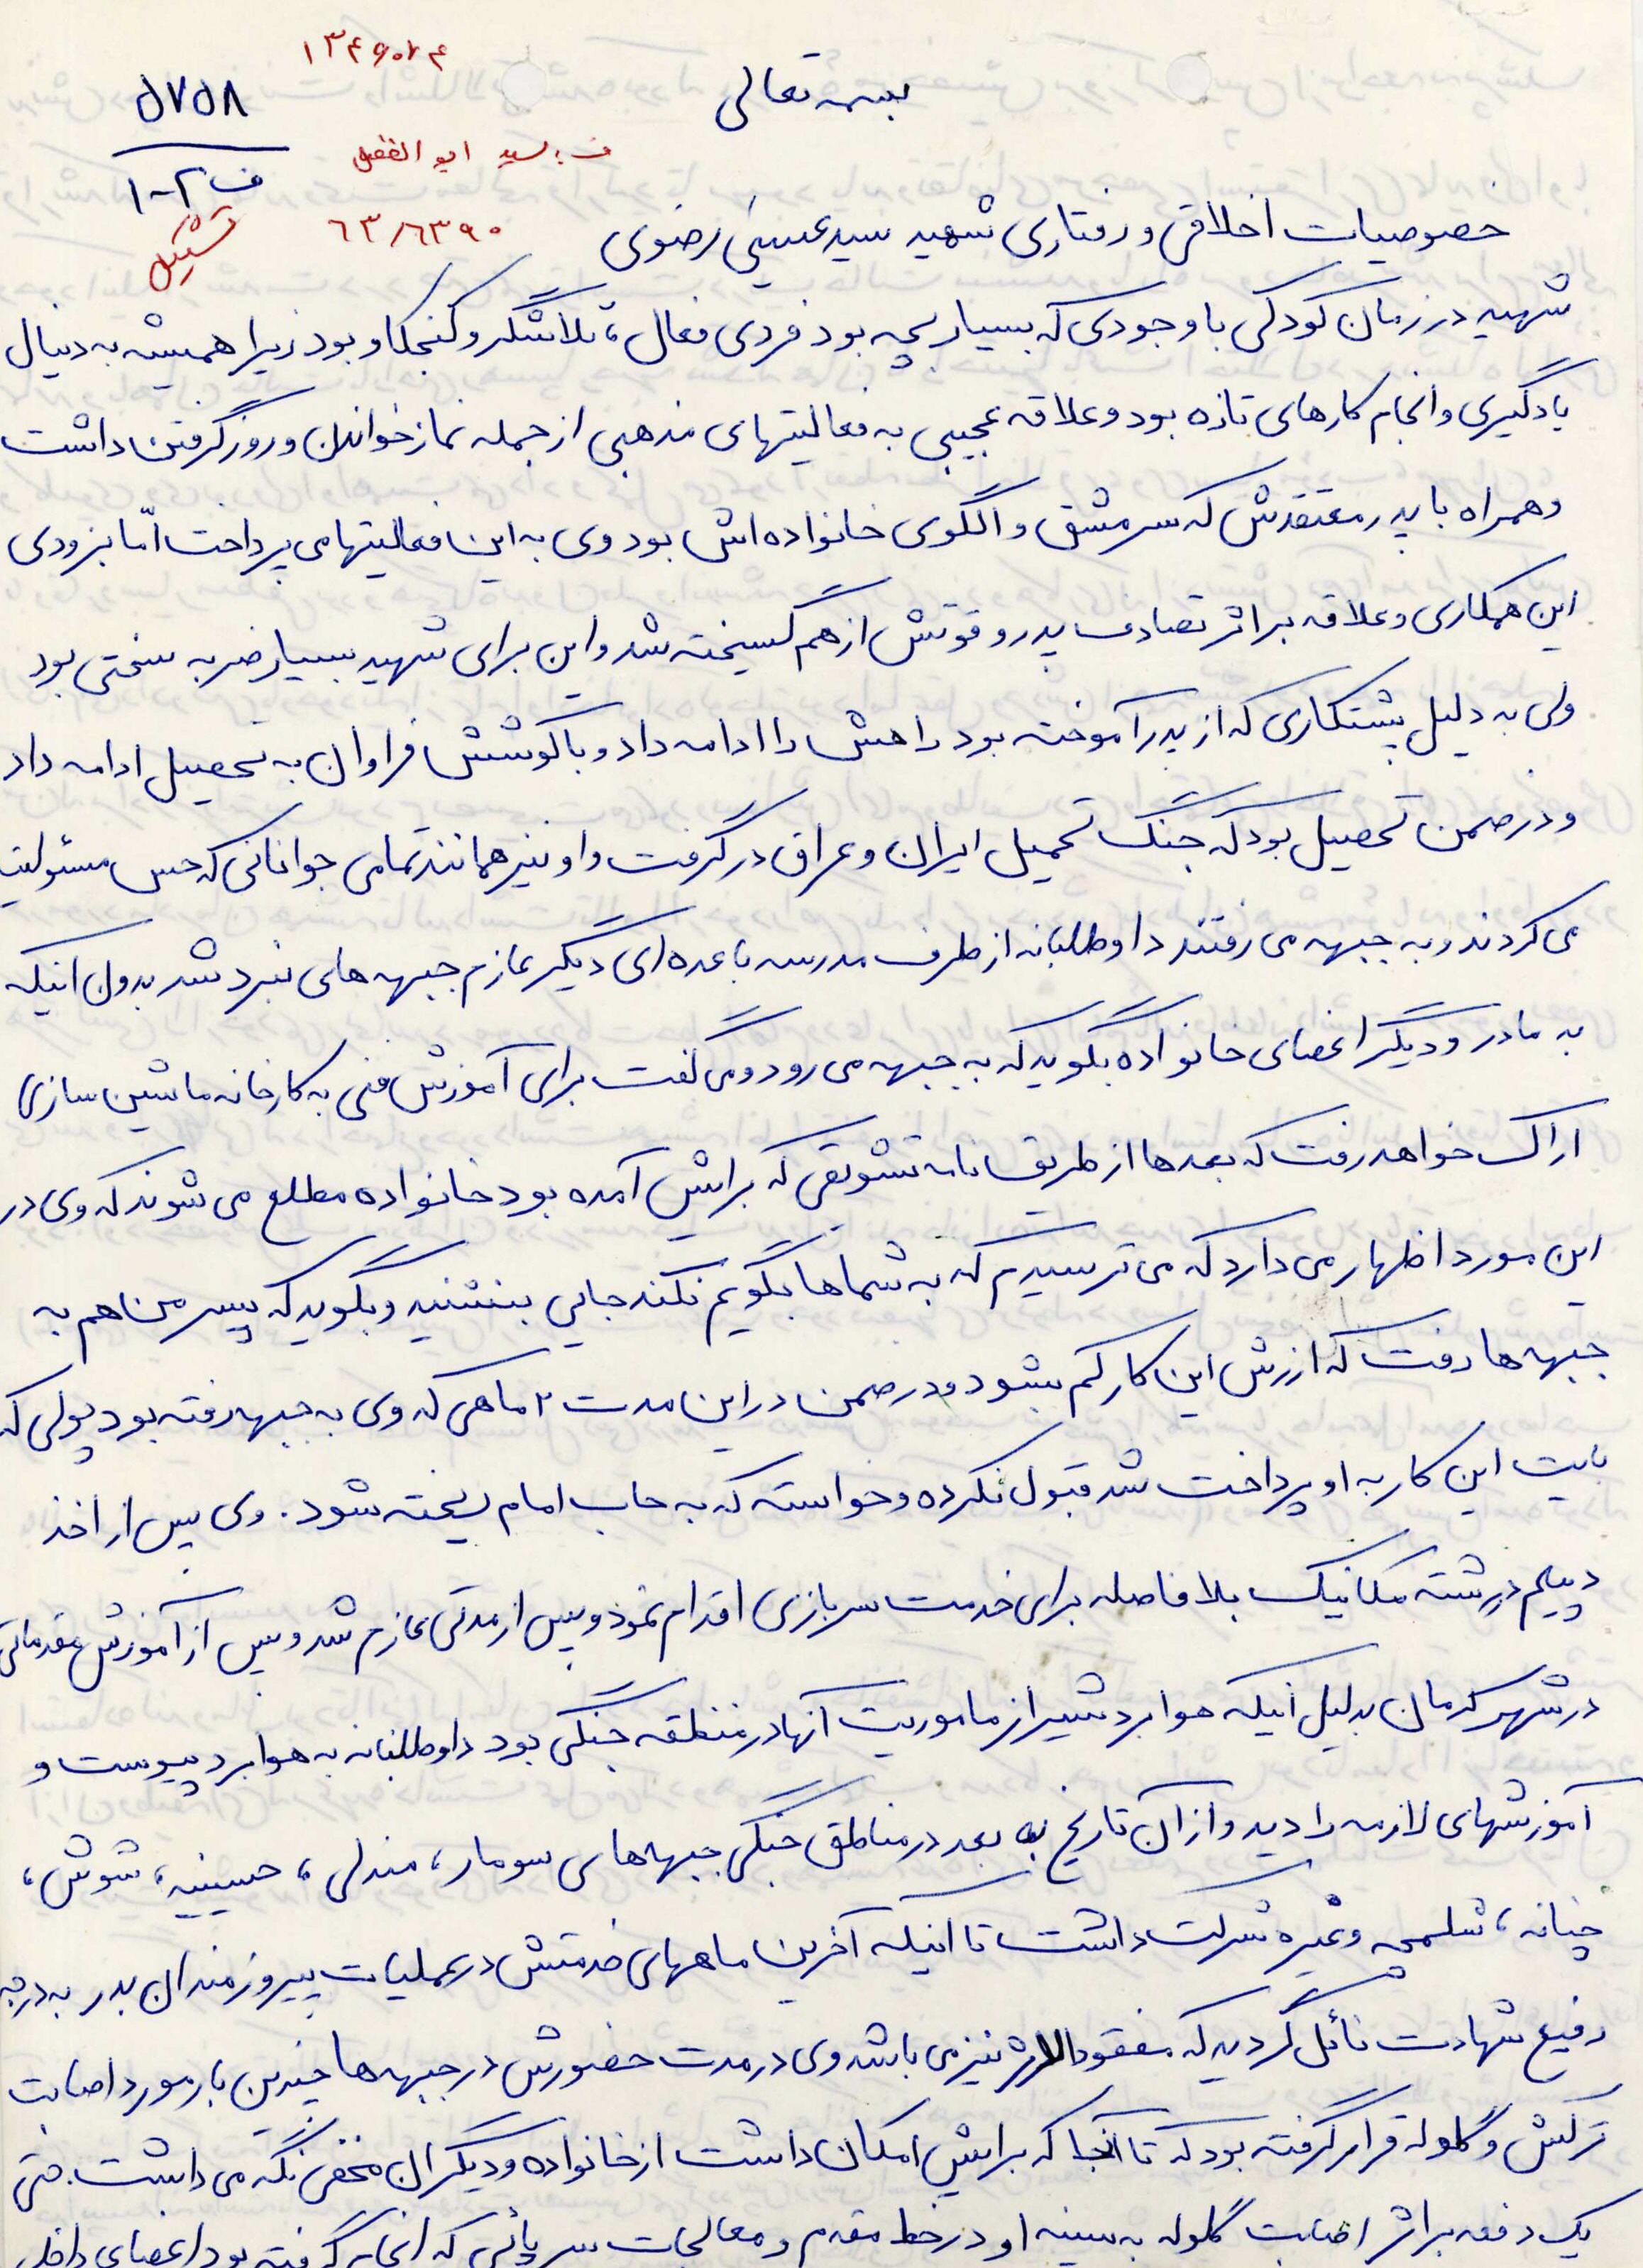 ۱۳۴۶۰۲۴
بسمه تعالی
۵۷۵۸
ف ۲-۱
ف: سید ابوالفضل
۶۳/۶۳۹۰
خصوصیات اخلاقی و رفتاری شهید سید عیسی رضوی
شهید در زمان کودکی با وجودی که بسیار بچه بود فردی فعال، تلاشگر و کنجکاو بود زیرا همیشه به دنبال
یادگیری و انجام کارهای تازه بود و علاقه عجیبی به فعالیتهای مذهبی از جمله نماز خواندن و روز گرفتن داشت
و همراه با پدر معتقدش که سرمشق و الگوی خانواده اش بود وی به این فعالیتها می پرداخت امّا بزودی
این همکاری و علاقه بر اثر تصادف پدر و فوتش از هم گسیخته شد و این برای شهید بسیار ضربه سختی بود
ولی به دلیل پشتکاری که از پدر آموخته بود راهش را ادامه داد و با کوشش فراوان به تحصیل ادامه داد
و در ضمن تحصیل بود که جنگ تحمیل ایران و عراق در گرفت و او نیز همانند تمامی جوانانی که حس مسئولیت
می کردند و به جبهه می رفتند داوطلبانه از طرف مدرسه با عده ای دیگر عازم جبهه های نبرد شد بدون اینکه
به مادر و دیگر اعضای خانواده بگوید که به جبهه می رود و می گفت برای آموزش فنی به کارخانه ماشین سازی
اراک خواهد رفت که بعدها از طریق نامه تشویقی که برایش آمده بود خانواده مطلع می شوند که وی در
این مورد اظهار می دارد که می ترسیدم که به شماها بگویم نکند جایی بنشنید و بگوید که پسر من هم به
جبهه ها رفت که ارزش این کار کم بشود و در ضمن در این مدت ۲ ماهی که وی به جبهه رفته بود پولی که
بابت این کار به او پرداخت شد قبول نکرده و خواسته که به حاب امام ریخته شود. وی پس از اخذ
دیپلم در رشته مکانیک بلا فاصله برای خدمت سربازی اقدام نمود و پس از مدتی عازم شد و پس از آموزش مقدماتی
در شهر کرمان بدلیل اینکه هوابرد شیراز ماموریت آنها در منطقه جنگی بود داوطلبانه به هوابرد پیوست و
آموزشهای لازمه را دید و از آن تاریخ به بعد در مناطق جنگی جبهه های سومار، مندلی، حسینیه، شوش،
چنانه، شلمچه و غیره شرکت داشت تا اینکه آخرین ماههای خدمتش در عملیات پیروزمندان بدر به درجه
رفیع شهادت نائل گردید که مفقودالاثر نیز می باشد وی در مدت حضورش در جبهه ها چندین بار مورد اصابت
ترکش و گلوله قرار گرفته بود که تا آنجا که برایش امکان داشت از خانواده و دیگران مخفی نگه می داشت. حتی
یک دفعه بر اثر اصابت گلوله به سینه او در خط مقدم و معالجات سر پائی که انجام گرفته بود اعضای داخلی